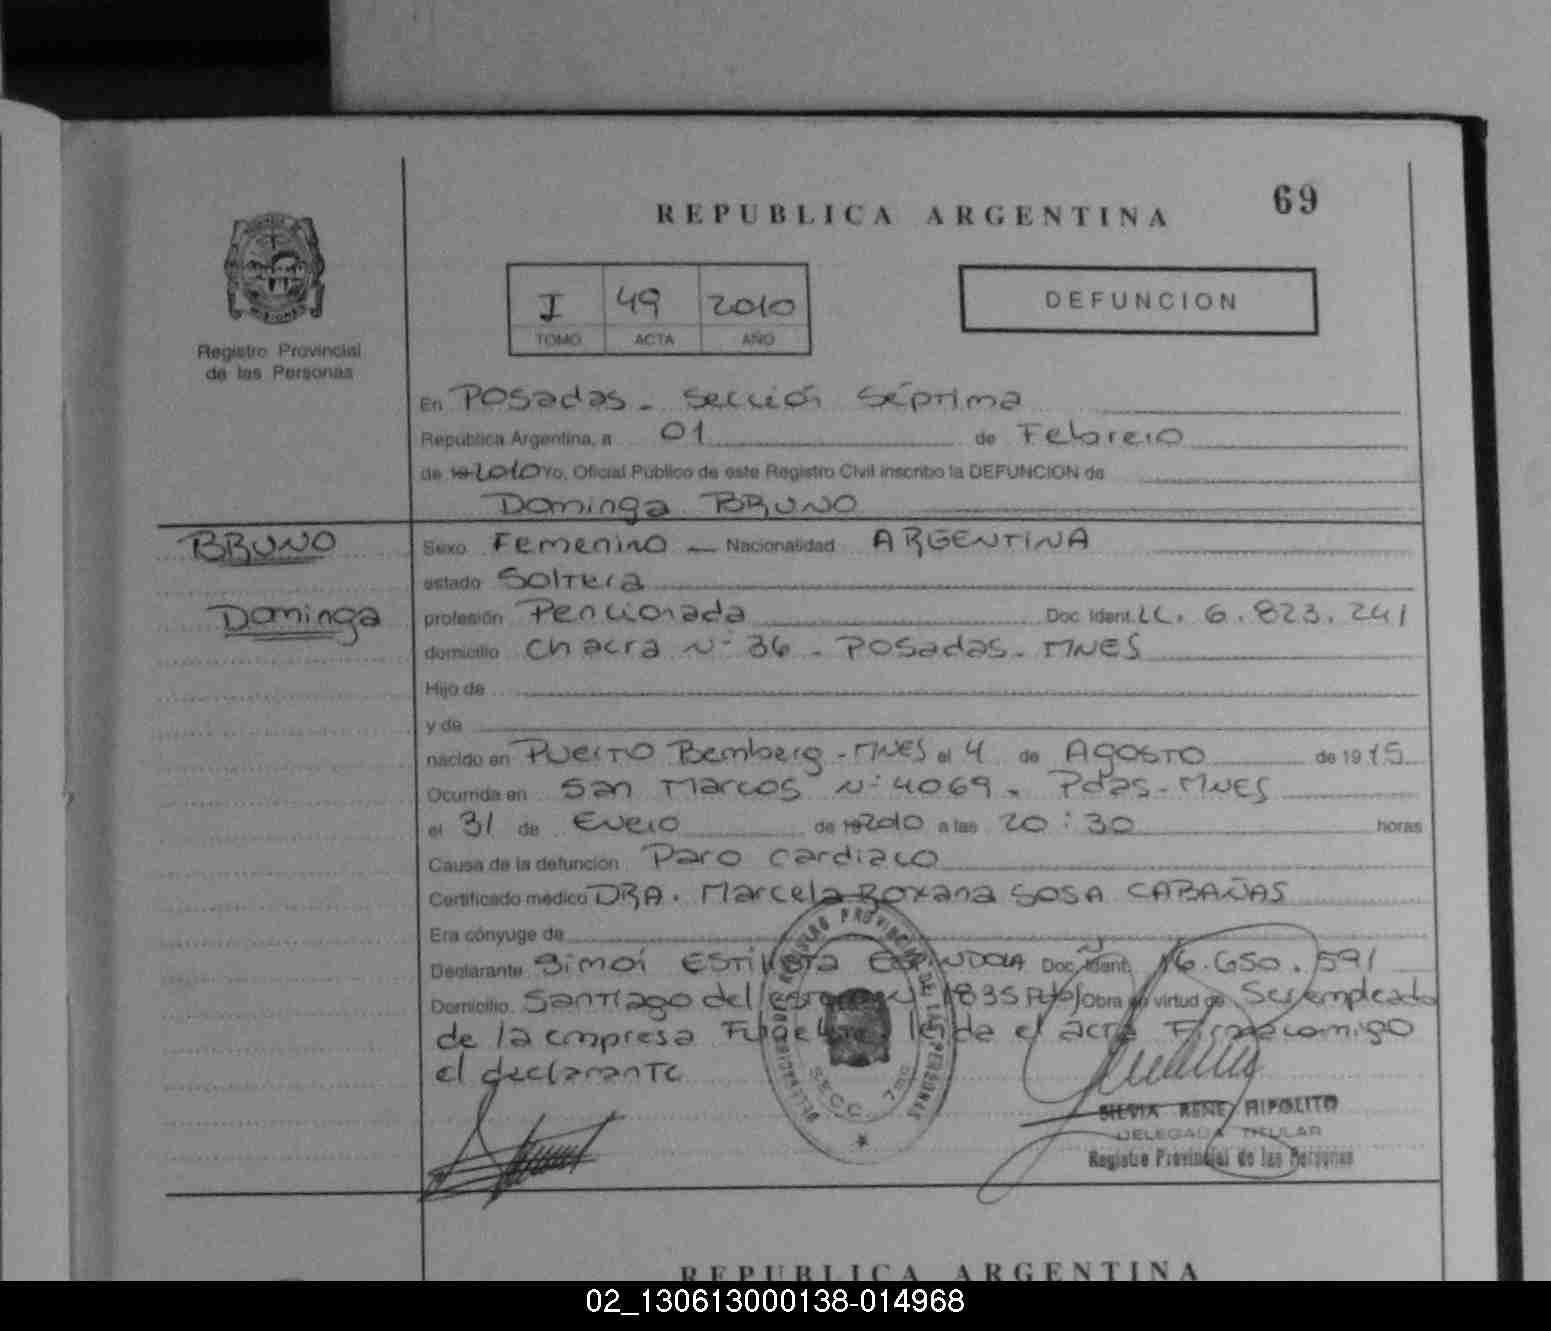 69
REPUBLICA ARGENTINA
I 49 2010
TOMO ACTA AÑO
DEFUNCION
Registro Provincial
de las Personas
En Posadas - Sección Séptima
República Argentina, a 01 de Febrero
de 19 2010 Yo, Oficial Público de este Registro Civil inscribo la DEFUNCION de
Dominga BRUNO
BRUNO
Dominga
Sexo Femenino - Nacionalidad ARGENTINA
estado Soltera
profesión Pencionada Doc. Ident. LC. 6.823.241
domicilio Chacra N° 36 - Posadas - MNES
Hijo de
y de
nacido en Puerto Bemberg - MNES el 4 de AGOSTO de 19 15
Ocurrida en San Marcos N° 4069. Pdas - MNES
el 31 de Enero de 19 2010 a las 20:30 horas
Causa de la defunción Paro cardiaco
Certificado médico DRA. Marcela Roxana SOSA CABAÑAS
Era cónyuge de
Declarante Doc. Ident. 16.650.591
Domicilio Santiago del 1835 Obra en virtud de Ser empleado
de la empresa el acta Firma comigo
el declarante
SECC. 7ma
SILVIA RENE HIPOLITO
DELEGADA TITULAR
Registro Provincial de las Personas
REPUBLICA ARGENTINA
02_130613000138-014968